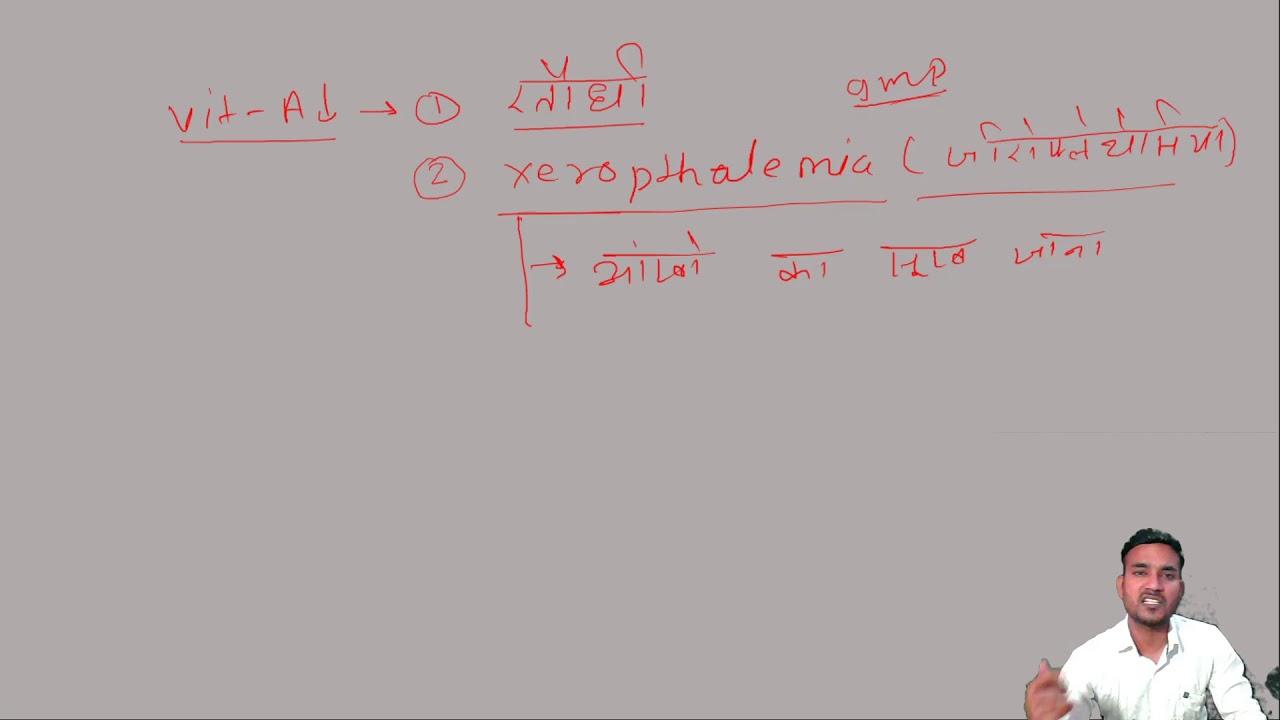 Vit-A↓ → ① रतौंधी
gmp
② xeropthalemia (जीरोफ्लेथोमिया)
→ आंखो का सूख जाना